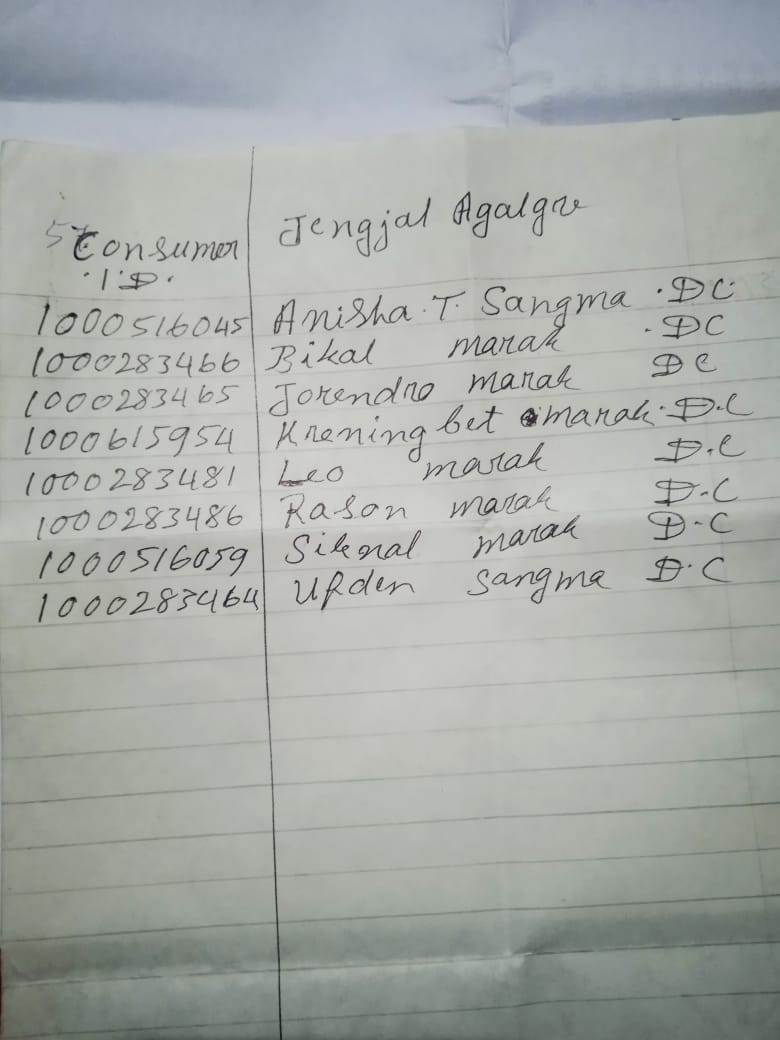 57 Consumer Jengjal Agalgre
I.D.
1000516045 Anisha. T. Sangma . DC
1000283466 Bikal marak . DC
1000283465 Jorendro marak DC
1000615954 Krening bet marak. D.C
1000283481 Leo marak D.C
1000283486 Rason marak D.C
1000516059 marak D.C
1000283464 Upden Sangma D.C